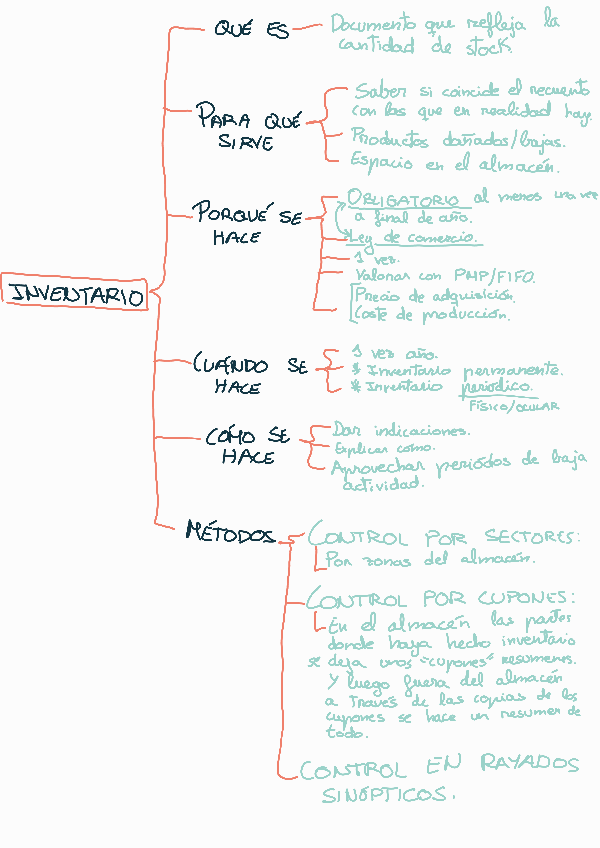 QUÉ ES
Documento que refleja la
cantidad de stock.
PARA QUÉ
SIRVE
Saber si coincide el recuento
con las que en realidad hay.
Productos dañados/bajas.
Espacio en el almacén.
PORQUÉ SE
HACE
OBLIGATORIO al menos una vez
a final de año.
Ley de comercio.
1 vez.
Valorar con PMP/FIFO.
Precio de adquisición.
Coste de producción.
INVENTARIO
CUÁNDO SE
HACE
1 vez año.
* Inventario permanente.
* Inventario periódico.
FÍSICO/OCULAR
CÓMO SE
HACE
Dar indicaciones.
Explicar como.
Aprovechar periódos de baja
actividad.
MÉTODOS
CONTROL POR SECTORES:
Por zonas del almacén.
CONTROL POR CUPONES:
En el almacén las partes
donde haya hecho inventario
se deja unos "cupones" resumenes.
Y luego fuera del almacén
a través de las copias de los
cupones se hace un resumen de
todo.
CONTROL EN RAYADOS
SINÓPTICOS.